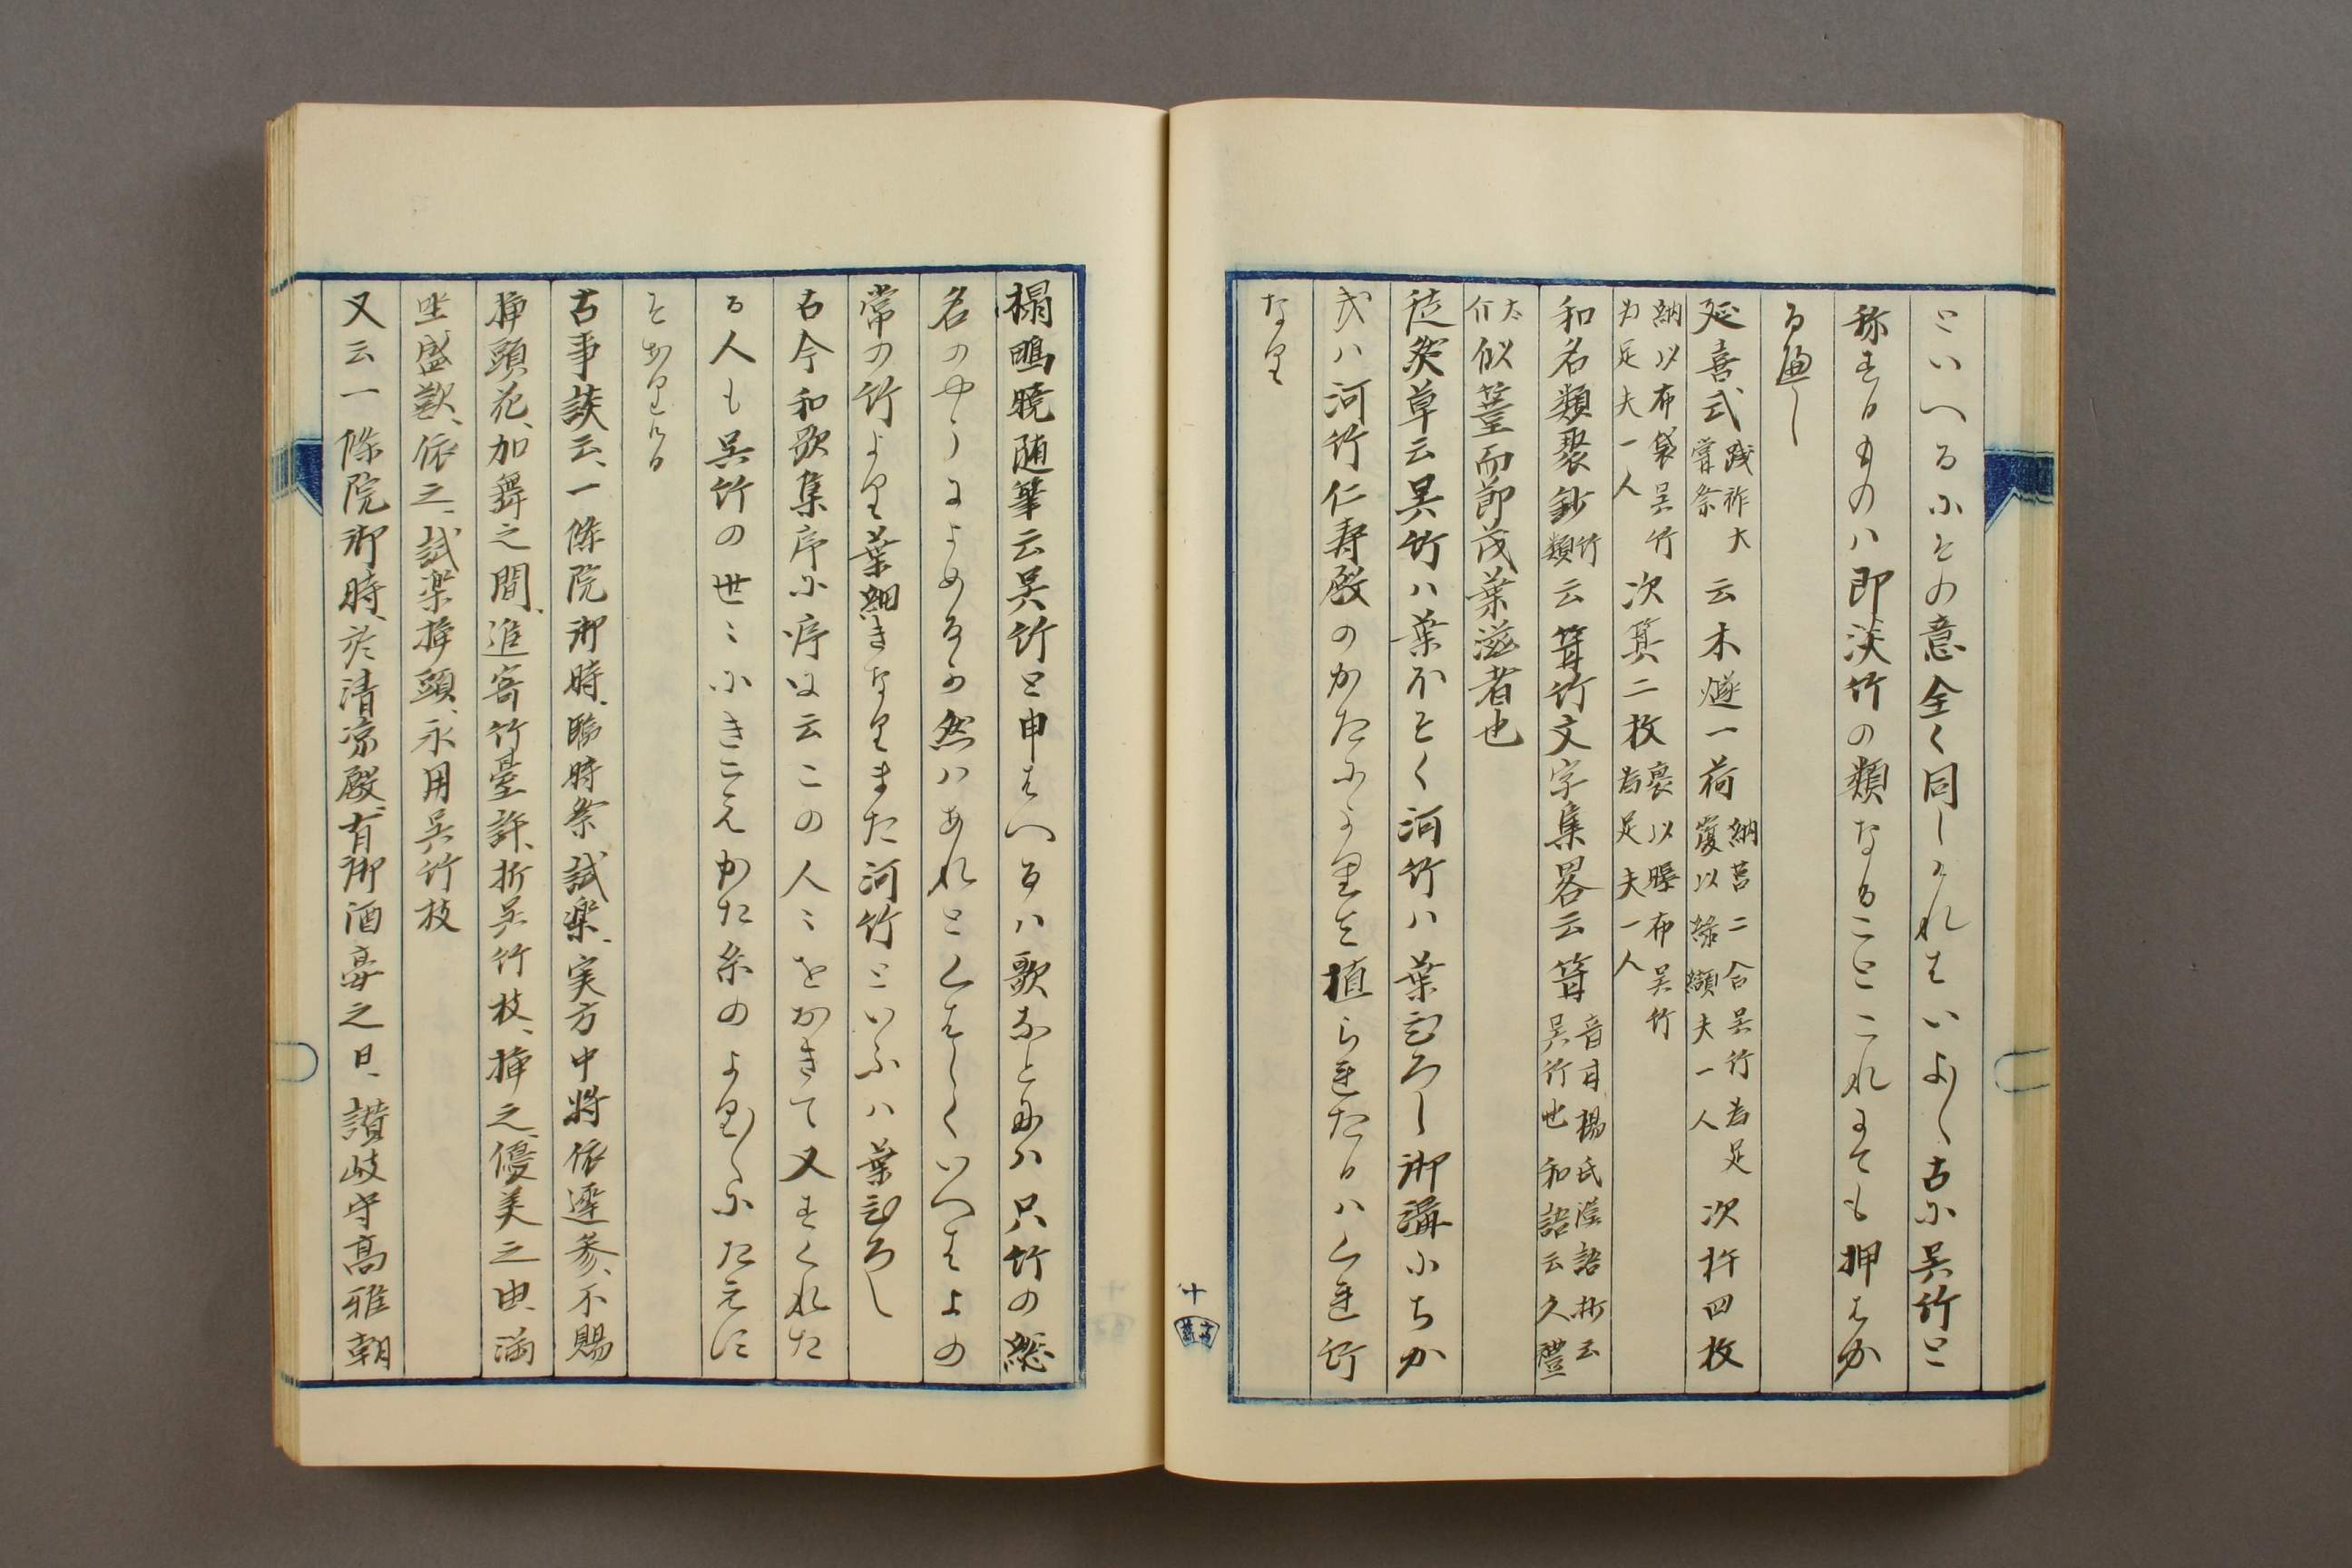 といへるにその意全く同しけれはいよ〱古に呉竹と
称するものハ即淡竹の類なることこれにても押はか
る遍し
延喜式踐祚大嘗祭云木燧一荷納筥二合呉竹為足覆以緑纈夫一人次杵四枚
納以布袋呉竹為足夫一人次箕二枚裹以曝布呉竹為足夫一人
和名類聚鈔竹類云䈽竹文字集畧云䈽音甘楊氏漢語抄云呉竹也和語云久禮太介
似篁而節茂葉滋者也
徒然草云呉竹ハ葉ほそく河竹ハ葉ひろし御溝にちか
きハ河竹仁寿殿のかたによりて植られたるハくれ竹
なり
十
榻鴫暁随筆云呉竹と申はへるハ歌なとにハ只竹の総
名のやうによめるか然ハあれとくはしくいへはよの
常の竹より葉細きなりまた河竹といふハ葉ひろし
古今和歌集序に序に云この人ミをおきて又すくれた
る人も呉竹の世ミにきこえかた糸のより〱にたえに
そありける
古事談云、一條院御時、臨時祭試楽、実方中将依遅参、不賜
挿頭花、加舞之間、進寄竹臺許、折呉竹枝、挿之、優美之由、満
坐盛歎、依之、試楽挿頭、永用呉竹枝
又云一條院御時、於清涼殿、有御酒宴之日、讃岐守高雅朝